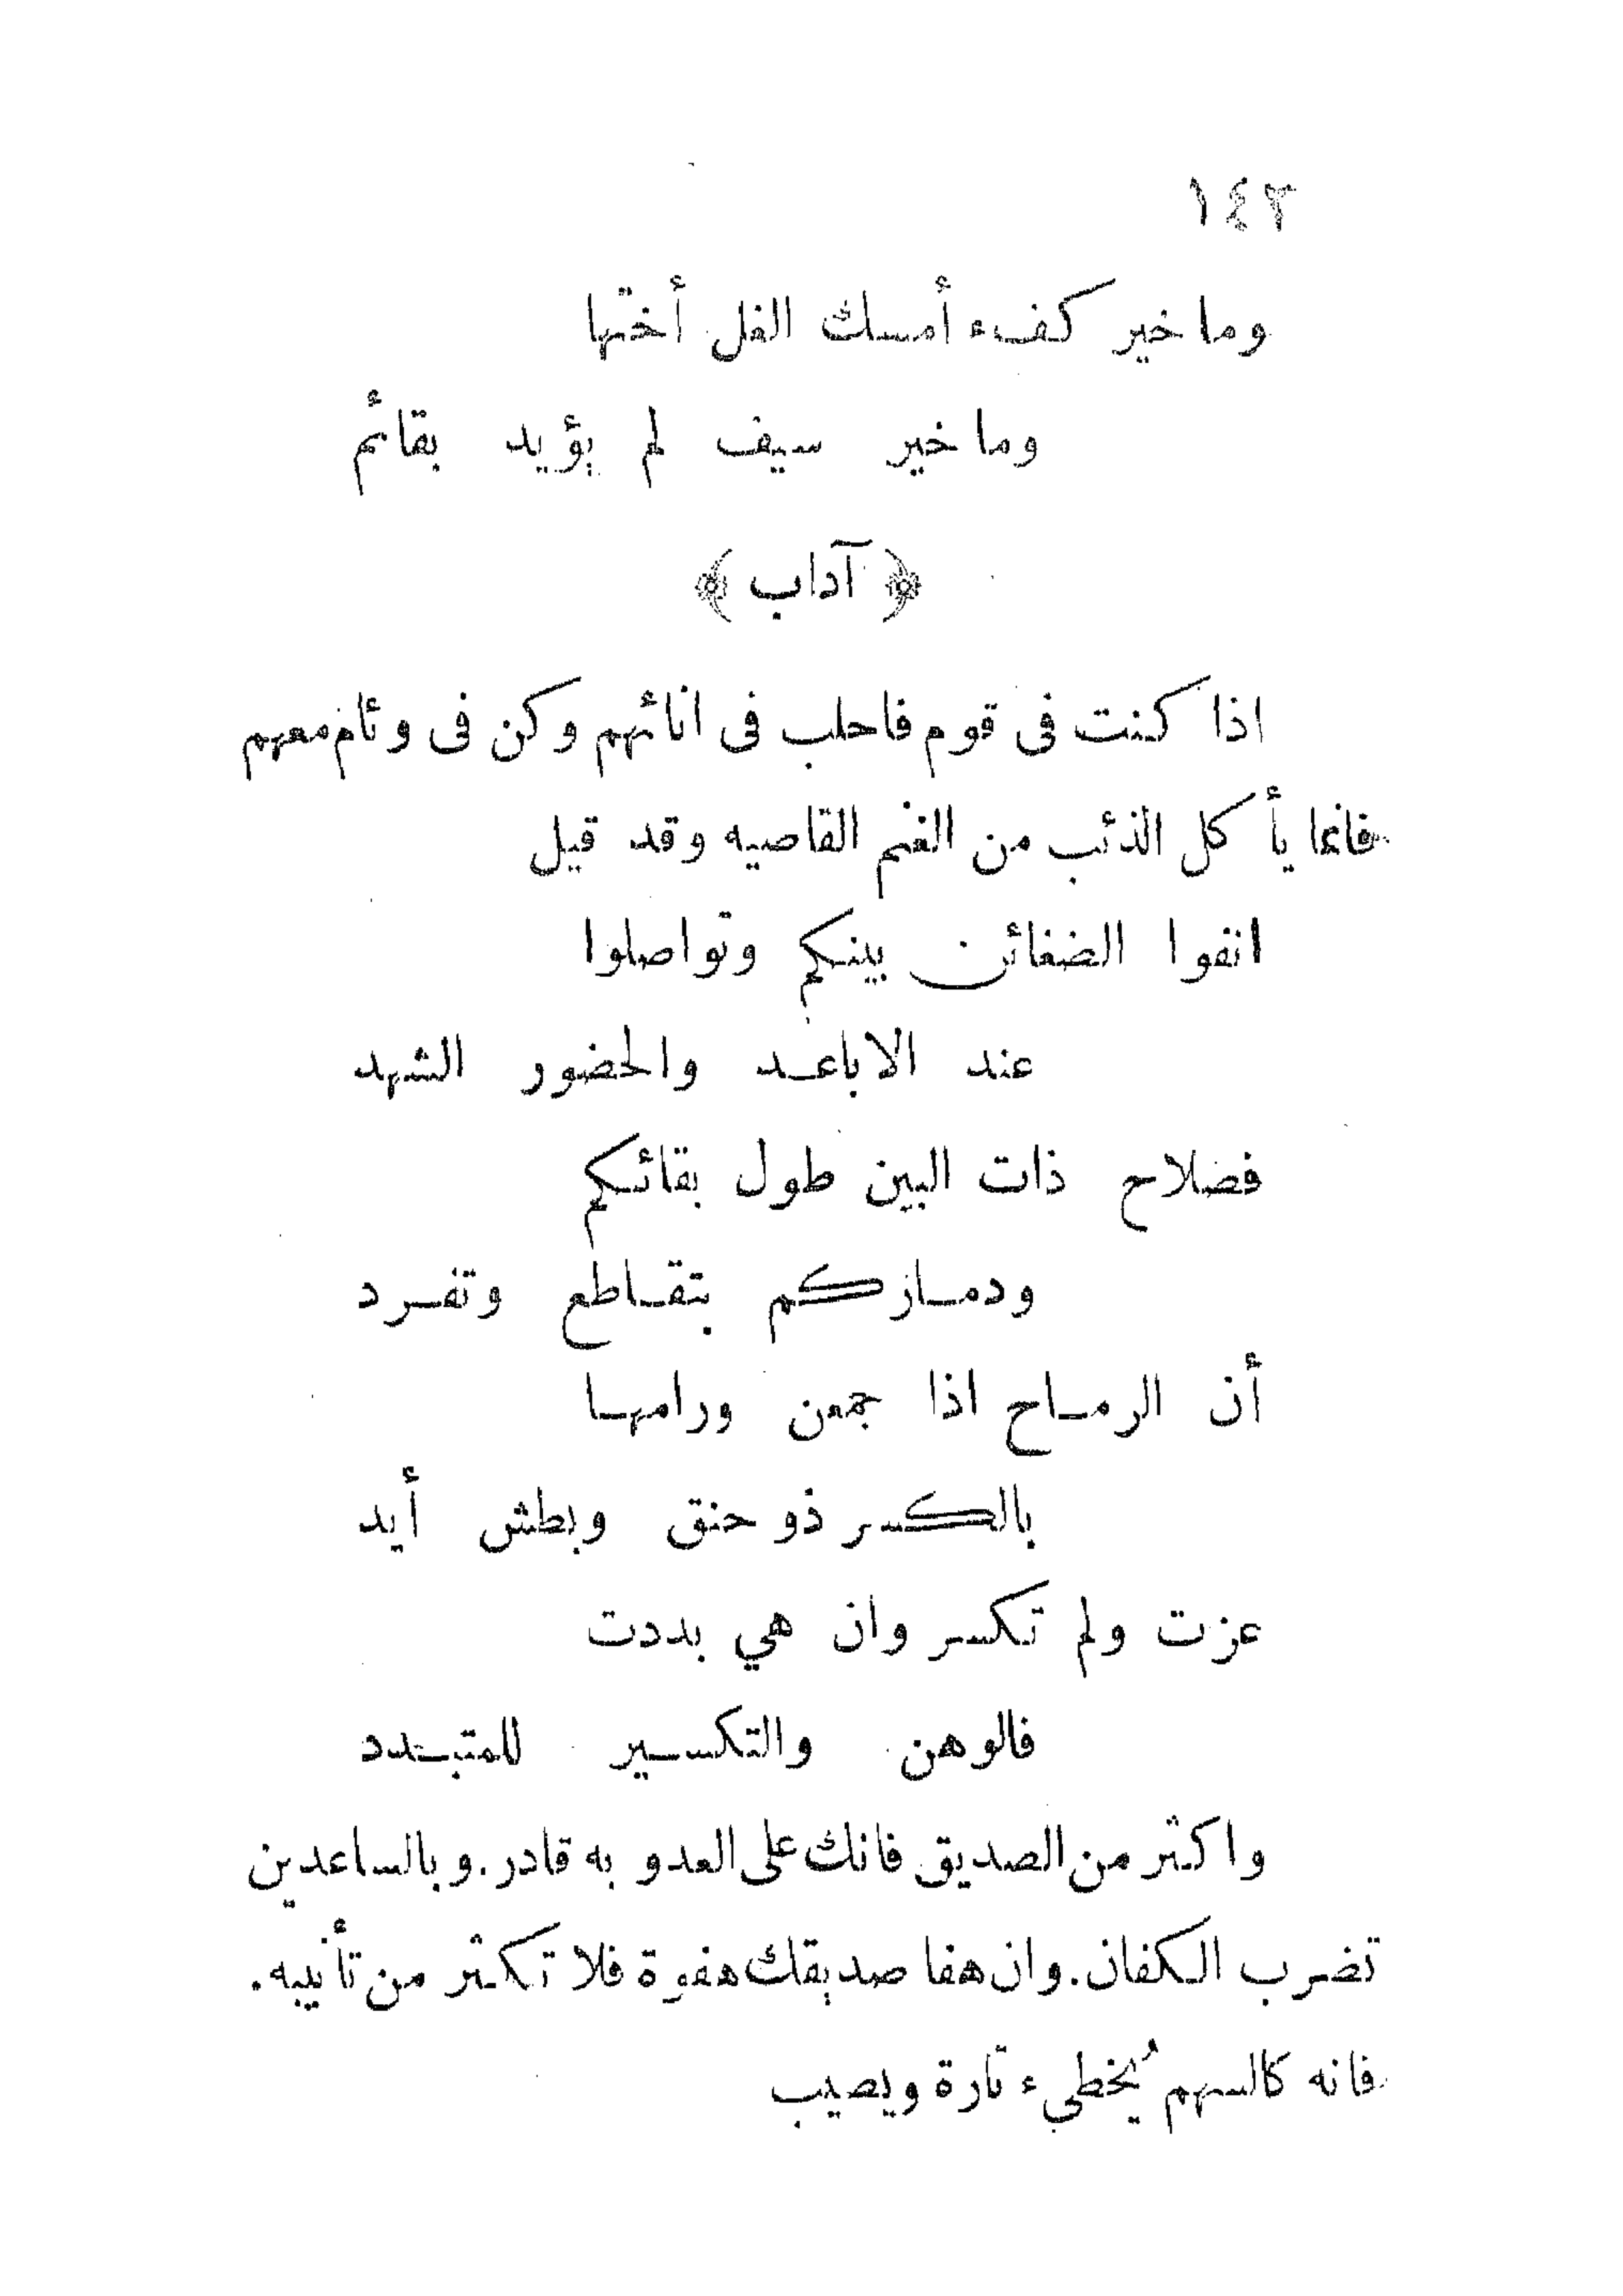 ١٤٣
وما خير كفء أمسك الغل أختها
وما خير سيف لم يؤيد بقائم
﴿ آداب ﴾
اذا كنت فى قوم فاحلب فى انائهم وكن فى وئام معهم
فانما يأكل الذئب من الغنم القاصيه وقد قيل
انفوا الضغائن بينكم وتواصلوا
عند الاباعد والحضور الشهد
فصلاح ذات البين طول بقائكم
ودماركم بتقاطع وتفرد
أن الرماح اذا جمعن ورامها
بالكسر ذو حنق وبطش أيد
عزت ولم تكسر وان هي بددت
فالوهن والتكسير للمتبدد
واكثر من الصديق فانك على العدو به قادر. وبالساعدين
تضرب الكفان. وان هفا صديقك هفوة فلا تكثر من تأنيبه.
فانه كالسهم يُخطيء تارة ويصيب